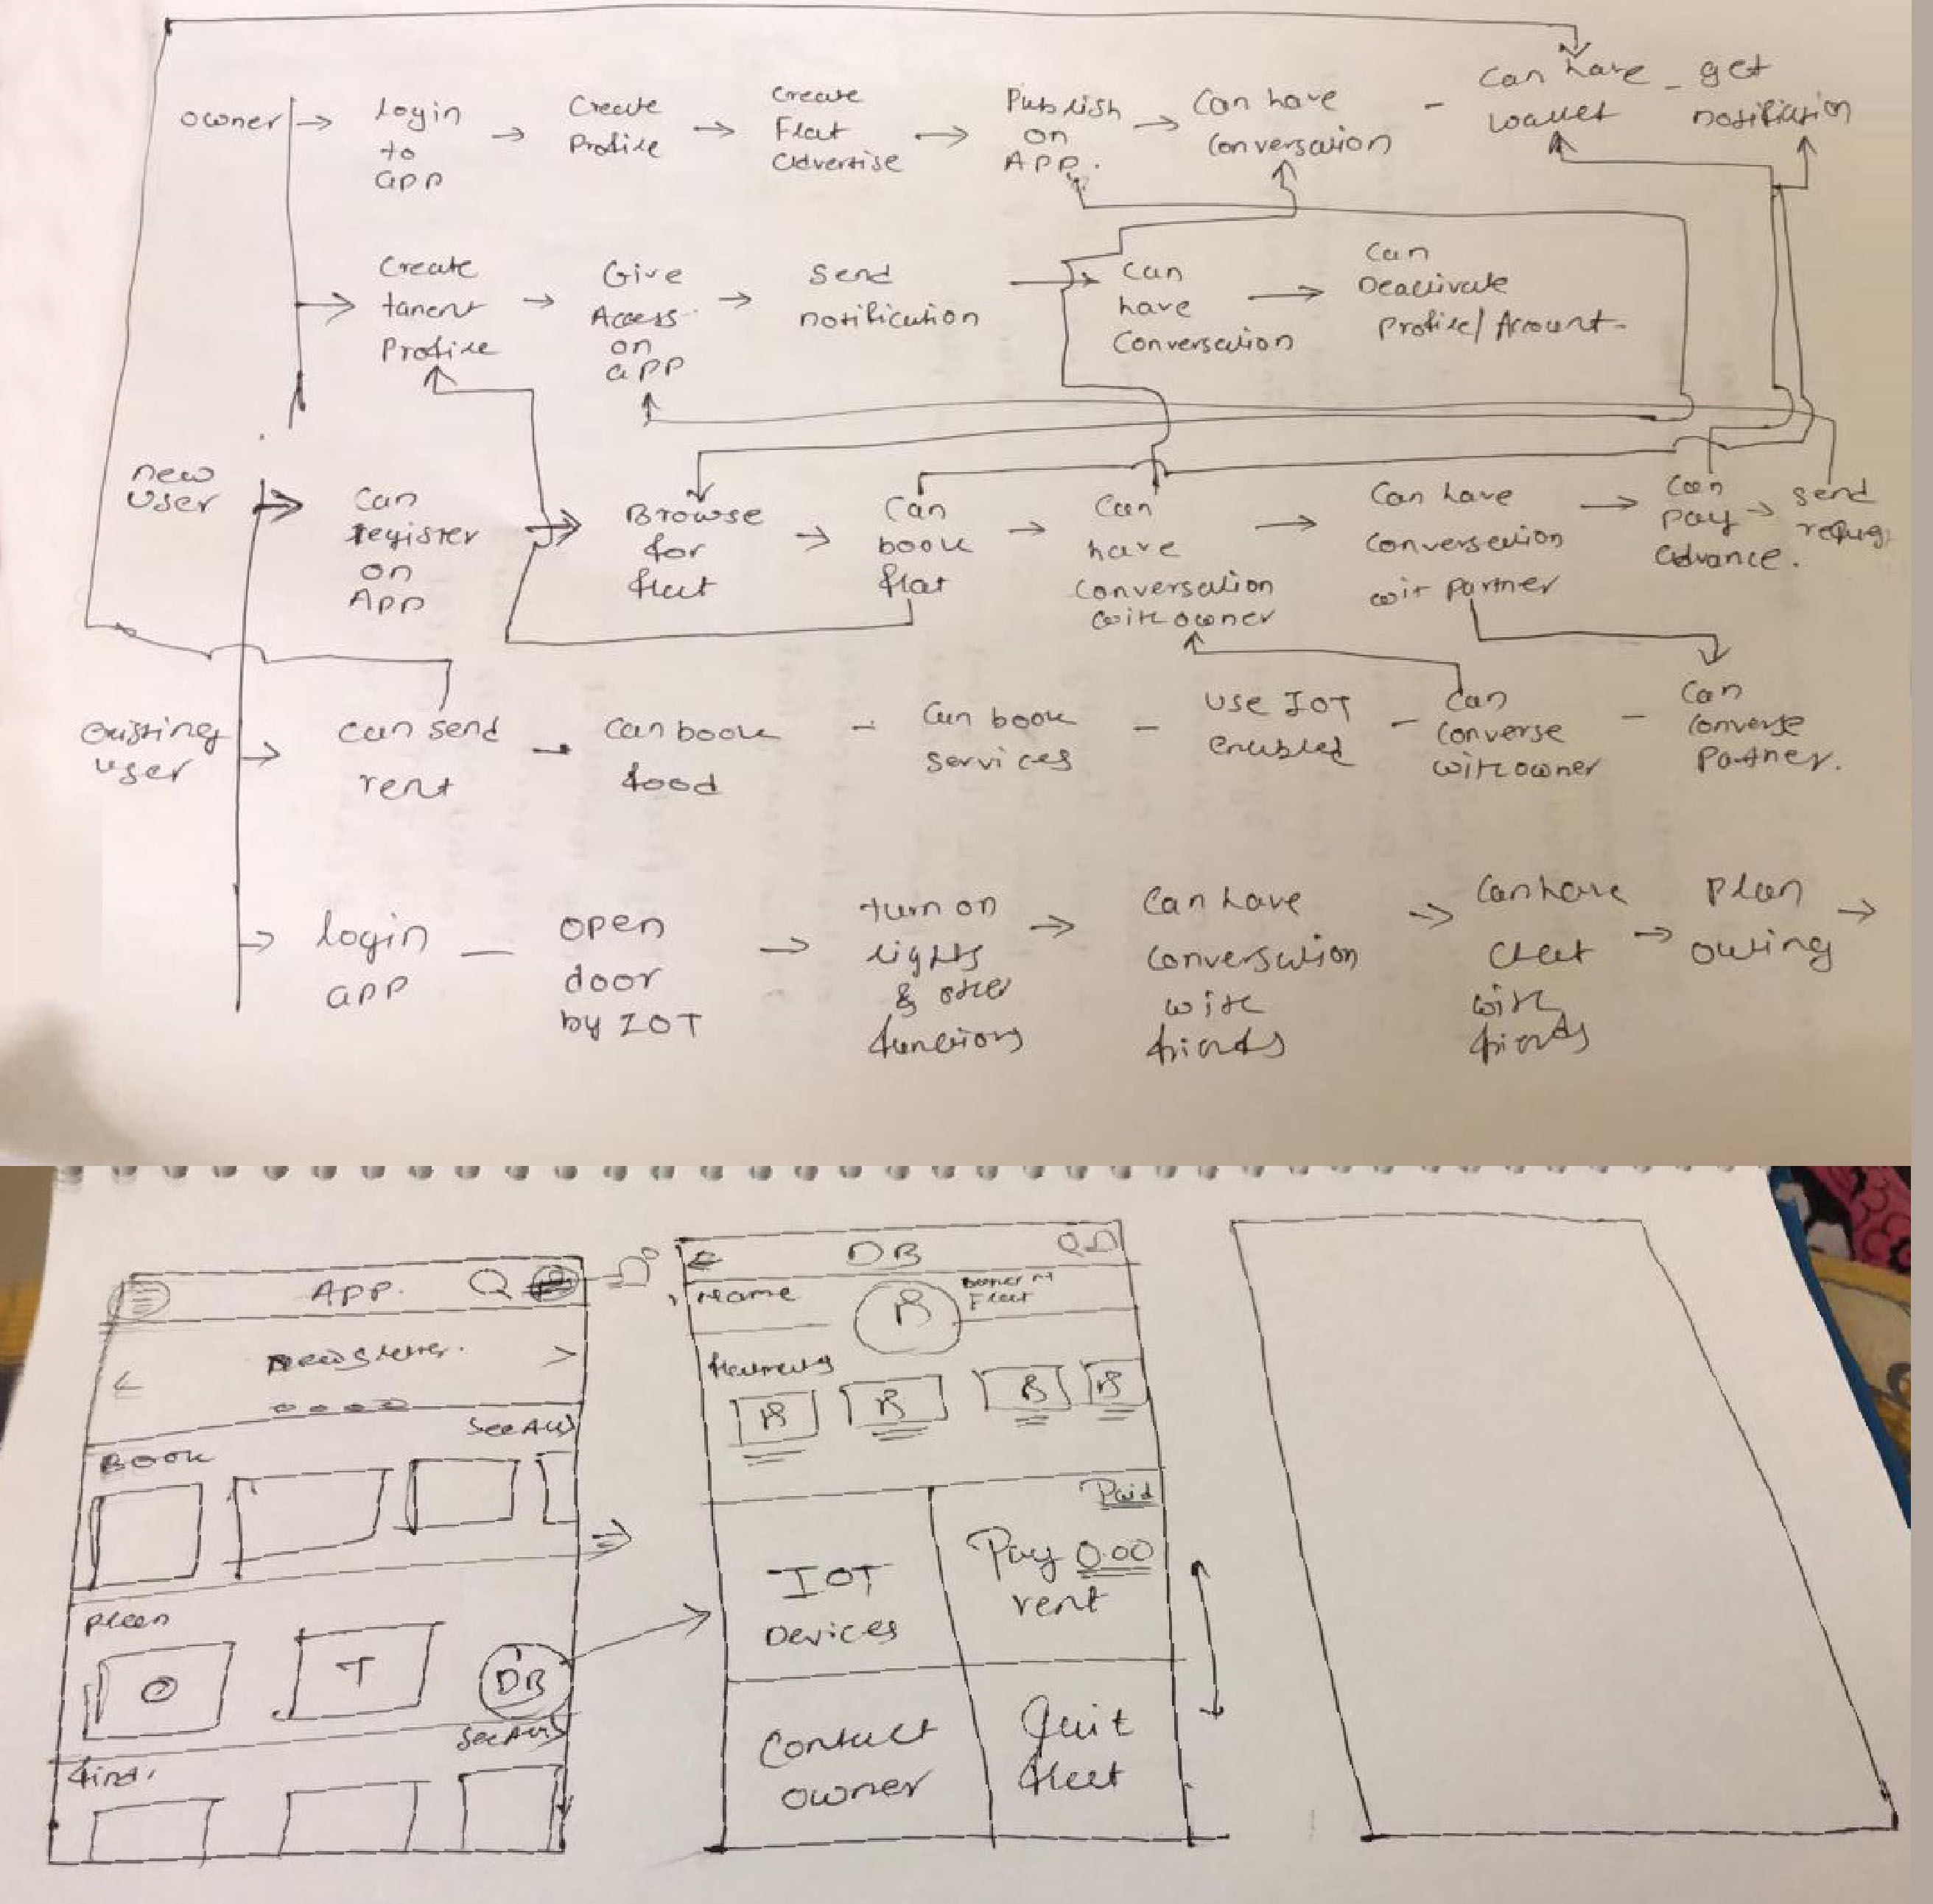 owner
Login
to
app
Create
Profile
Create
Flat
Advertise
Publish
on
APP.
Can have
Conversation
Can have
wallet
get
notification
Create
tanent
Profile
Give
Access
on
app
Send
notification
Can
have
Conversation
Can
Deactivate
Profile/Account
new
user
Can
register
on
App
Browse
for
flat
Can
book
flat
Can
have
Conversation
with owner
Can have
Conversation
wit partner
Can
pay
advance.
send
existing
user
can send
rent
can book
food
Can book
services
use IOT
enabled
Can
Converse
with owner
Can
Converse
Partner.
login
app
open
door
by IOT
turn on
lights
& other
functions
Can have
Conversation
with
friends
Can have
chat
with
friends
Plan
APP.
Newsletter.
See All
Book
Plan
T
DB
See All
find
DB
Name
Flat
IOT
Devices
Paid
Pay 0.00
rent
Contact
owner
Quit
flat